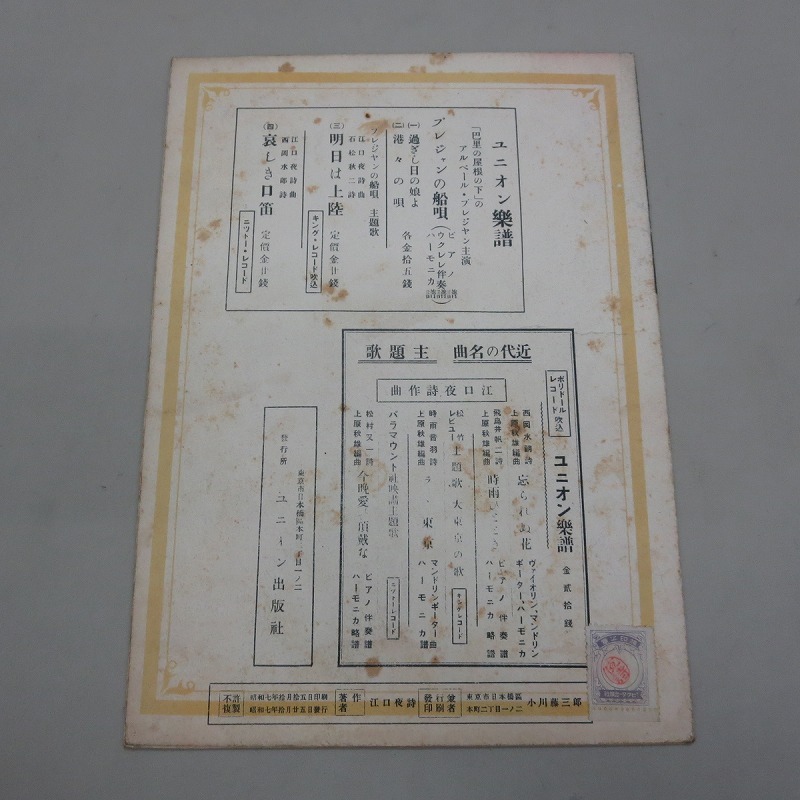 ユニオン樂譜
「巴里の屋根の下」の
アルベール・プレジヤン主演
プレジャンの船唄
ピアノ
ウクレレ伴奏
ハーモニカ
(一) 過ぎし日の娘よ
(二) 港々の唄
各金拾五錢
プレジヤンの船唄 主題歌
江口夜詩曲
石松秋二詩
(三) 明日は上陸 定價金廿錢
キング・レコード吹込
江口夜詩曲
西岡水郎詩
(四) 哀しき口笛 定價金廿錢
ニツトー・レコード
近代の名曲 主題歌
江口夜詩作曲
ポリドール
レコード吹込
ユニオン樂譜 金貳拾錢
西岡水郎詩
上原秋雄編曲
忘られぬ花
ヴァイオリン、マンドリン
ギーター・ハーモニカ
飛鳥井帆二詩
上原秋雄編曲
時雨
ピアノ伴奏譜
ハーモニカ略譜
松竹
レビュー
主題歌 大東京の歌
キングレコード
時雨音羽詩
上原秋雄編曲
東京
マンドリンギーター曲
ハーモニカ譜
パラマウント社映畫主題歌
ニットーレコード
松村又一詩
上原秋雄編曲
今晩愛頂戴な
ピアノ伴奏譜
ハーモニカ略譜
東京市日本橋區本町二丁目一ノ二
發行所 ユニオン出版社
不許複製
昭和七年拾月拾五日印刷
昭和七年拾月廿五日發行
著作者 江口夜詩
發行兼印刷者
東京市日本橋區
本町二丁目一ノ二
小川藤三郎